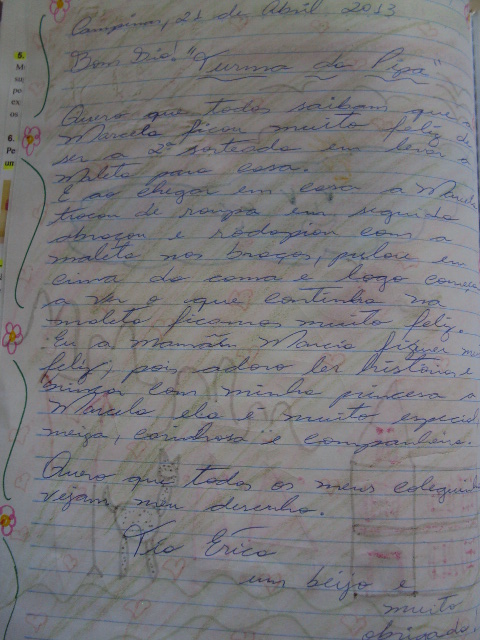 Campinas, 21 de Abril 2013
Bom Dia! "Turma da Pipa"
Quero que todos saibam que a
Marcela ficou muito feliz de
ser a 2ª sorteada em levar a
maleta para casa.
E ao chegar em casa a Marcela
trocou de roupa em seguida
abraçou e rodopiou com a
maleta nos braços, pulou em
cima da cama e logo começou
a ver o que continha na
maleta ficamos muito feliz.
Eu a mamãe Marcia fiquei
feliz, pois adoro ler histórias e
brincar com minha princesa a
Marcela ela é muito especial
meiga, carinhosa e companheira.
Quero que todos os meus coleguinhas
vejam meu desenho.
Tia Érica
um beijo e
muito
obrigada!
5.
6.